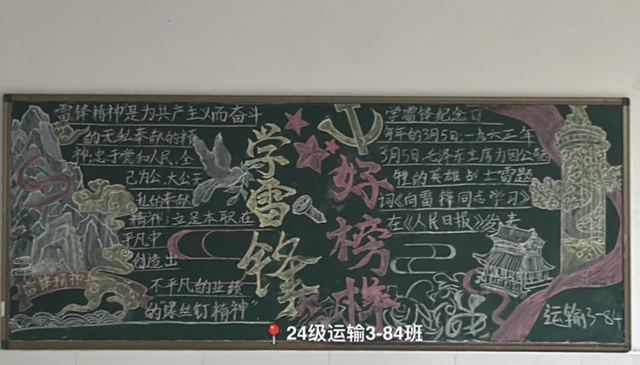 雷锋精神"是为共产主义而奋斗
的无私奉献的精
神;忠于党和人民、全
己为公、大公无
私的奉献
精神;立足本职、在
平凡中
创造出
不平凡的业绩
的螺丝钉精神"
雷锋精神
学雷锋
好榜样
学雷锋纪念日
年的3月5日,一九六三年
3月5日,毛泽东主席为因公牺
牲的英雄战士雷锋题
词《向雷锋同志学习》
在《人民日报》发表
运输3-84
24级运输3-84班